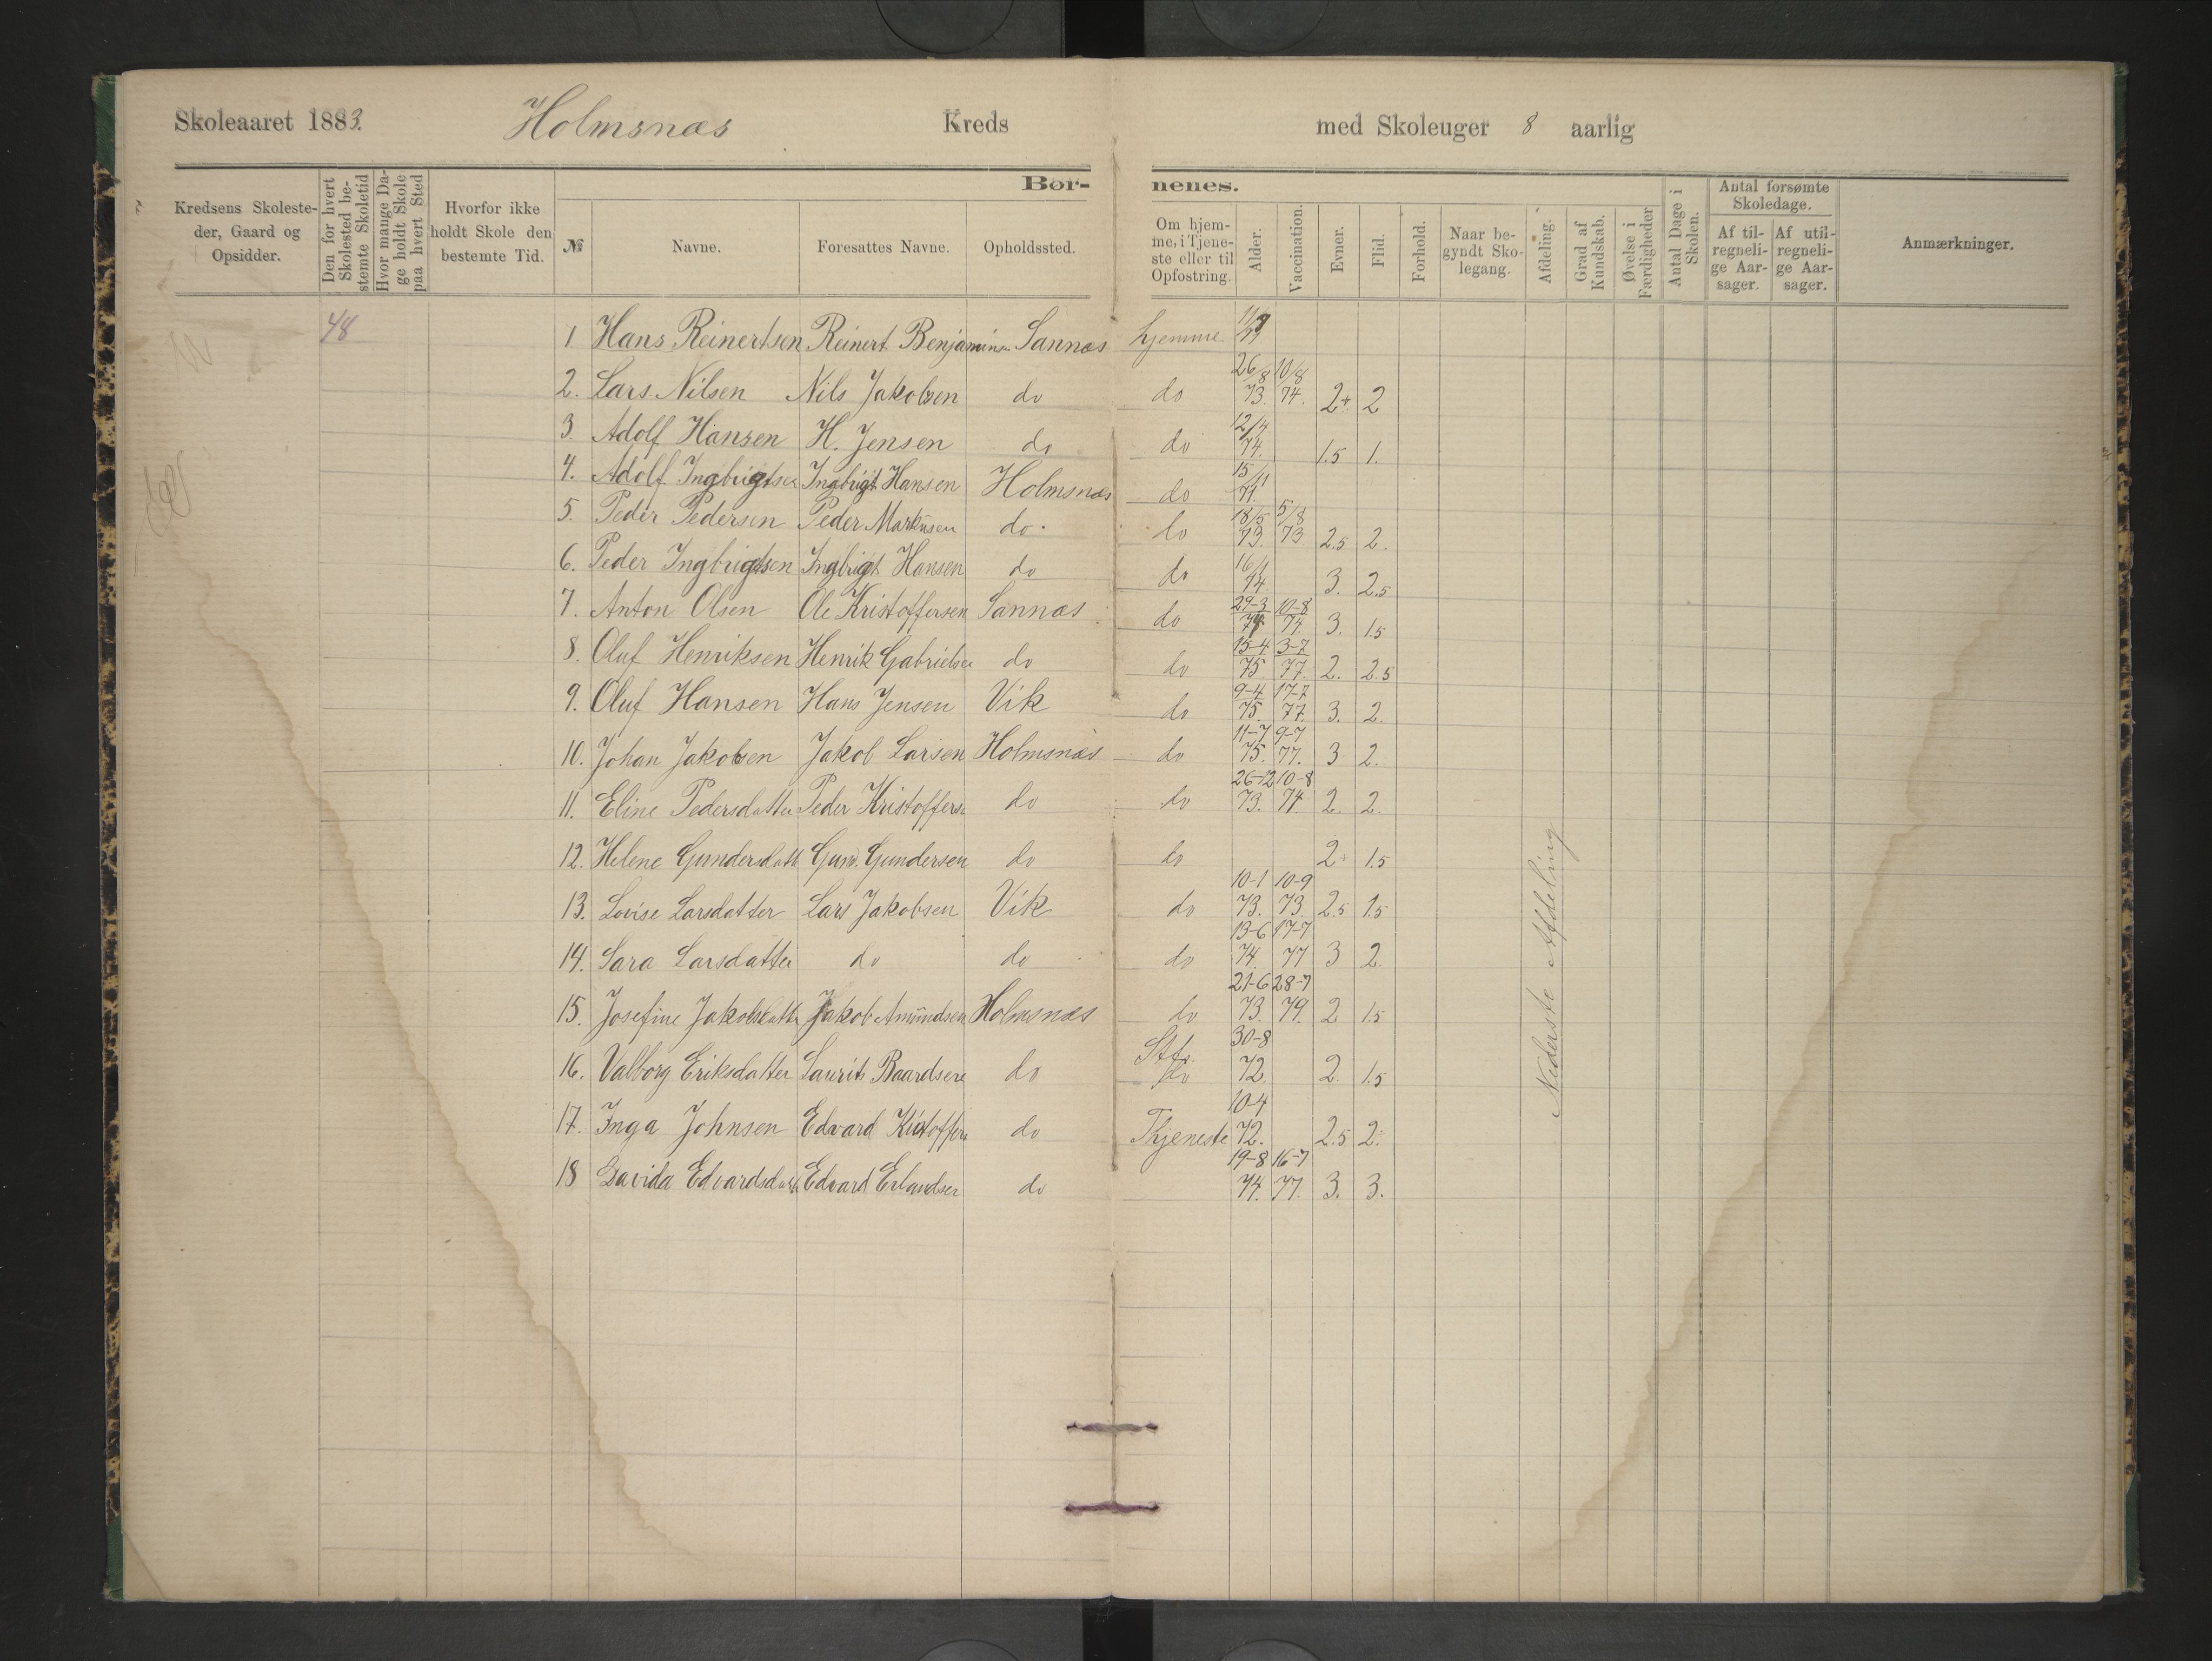 Skoleaaret 1883. Holmsnæs Kreds med Skoleuger 8 aarlig
Bør- nenes.
Kredsens Skoleste-
der, Gaard og
Opsidder.
Den for hvert
Skolested be-
stemte Skoletid
Hvor mange Da-
ge holdt Skole
paa hvert Sted
Hvorfor ikke
holdt Skole den
bestemte Tid.
№
Navne.
Foresattes Navne.
Opholdssted.
Om hjem-
me, i Tjene-
ste eller til
Opfostring.
Alder.
Vaccination.
Evner.
Flid.
Forhold.
Naar be-
gyndt Sko-
legang.
Afdeling.
Grad af
Kundskab.
Øvelse i
Færdigheder
Antal Dage i
Skolen.
Antal forsømte
Skoledage.
Af til-
regneli-
ge Aar-
sager.
Af util-
regneli-
ge Aar-
sager.
Anmærkninger.
48
1 Hans Reinertsen Reinert Benjaminsn Sannæs hjemme
2. Lars Nilsen Nils Jakobsen do do 26/8 73. 10/8 74. 2+ 2
3. Adolf Hansen H. Jensen do do 12/4 74. 1.5 1.
4. Adolf Ingbrigtsen Ingbrigt Hansen Holmsnæs do 15/11 71.
5. Peder Pedersen Peder Markusen do. do 18/5 73. 5/8 73 2.5 2.
6. Peder Ingbrigtsen Ingbrigt Hansen do do 16/1 74. 3. 2.5
7. Anton Olsen Ole Kristoffersen Sannæs do 29-3 10-8 74. 3. 1.5
8. Oluf Henriksen Henrik Gabrielsen do do 15-4 75. 3-7 77. 2. 2.5
9. Oluf Hansen Hans Jensen Vik do 9-4 75. 17-7 77. 3. 2.
10. Johan Jakobsen Jakob Larsen Holmsnæs do 11-7 75. 9-7 77. 3 2.
11. Eline Pedersdatter Peder Kristoffersn do do 26-12 73. 10-8 74. 2. 2.
12. Helene Gundersdatt Gund. Gundersen do do 2+ 1.5
13. Lovise Larsdatter Lars Jakobsen Vik do 10-1 73. 10-9 73. 2.5 1.5
14. Sara Larsdatter do do do 13-6 74. 17-7 77 3 2.
15. Josefine Jakobsdatte Jakob Amundsen Holmsnæs do 21-6 73. 28-7 79. 2 1.5
16. Valborg Eriksdatter Laurits Baardsen do do 30-8 72. 2. 1.5
17. Inga Johnsen Edvard Kristoffers do Thjeneste 10-4 72. 2.5 2.
18 Davida Edvardsdatt Edvard Erlandsen do 19-8 74. 16-7 77. 3. 3.
Nederste Afdeling